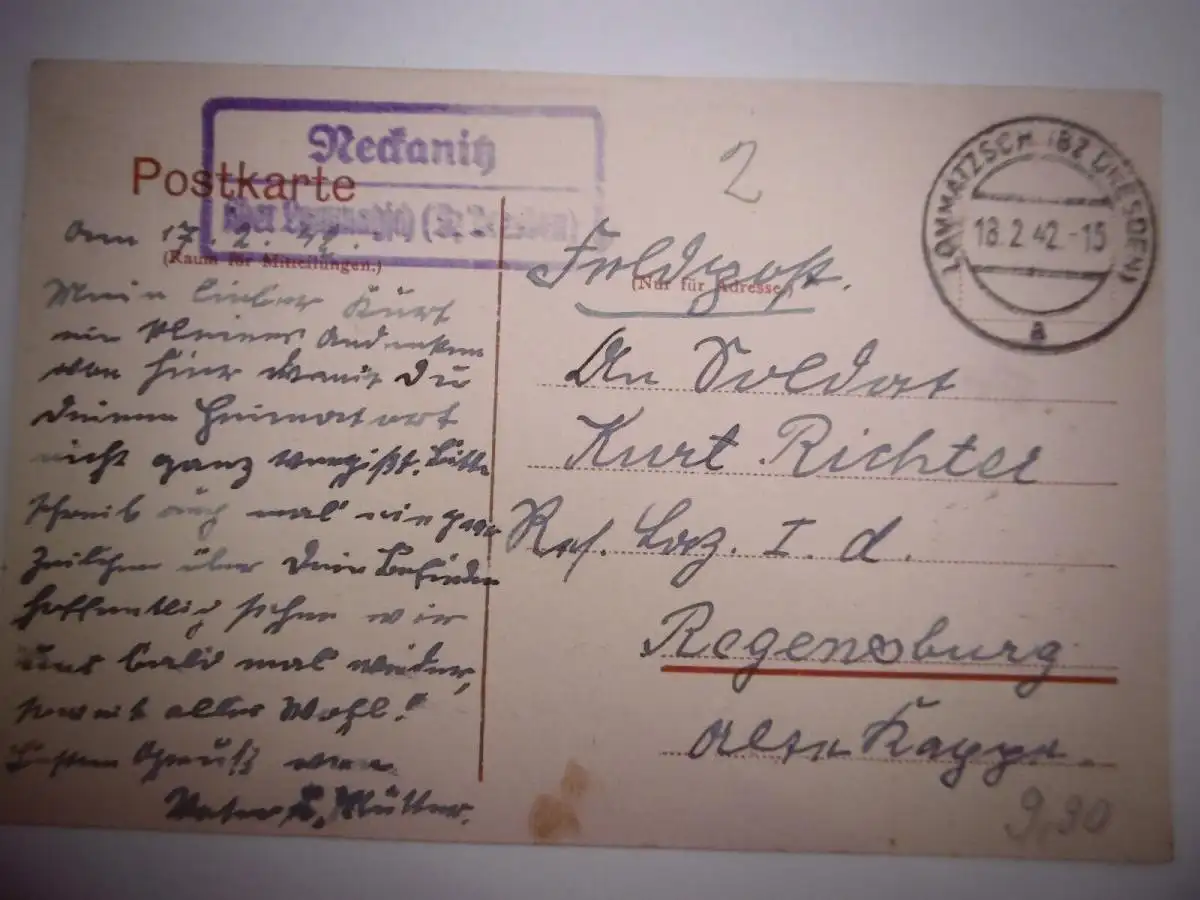 Neckanitz
über Lommatzsch (Bz Dresden)
Postkarte
(Raum für Mitteilungen.)
Am 17. 2. 42.
Mein lieber Kurt
ein kleines Andenken
von hier damit Du
Deinen Heimatort
nicht ganz vergißt. Bitte
schreib auch mal ein paar
Zeilchen über Dein Befinden
hoffentlich sehen wir
uns bald mal wieder,
soweit alles Wohl!
Besten Gruß von
Vater u. Mutter.
2
LOMMATZSCH (BZ DRESDEN)
18.2.42.-15
a
Feldpost.
(Nur für Adresse.)
An Soldat
Kurt Richter
Res. Laz. I. d.
Regensburg
Alte Kapp.
9,30